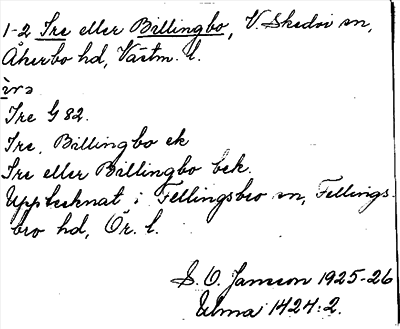 1-2 Ire eller Billingbo, V. Skedvi sn,
Åkerbo hd, Västm. l.
ìrɘ
Ire G 82.
Ire, Billingbo ek
Ire eller Billingbo bek.
Upptecknat i Fellingsbro sn, Fellings-
bro hd, Ör. l.
S. O. Jansson 1925-26
Ulma 1424:2.